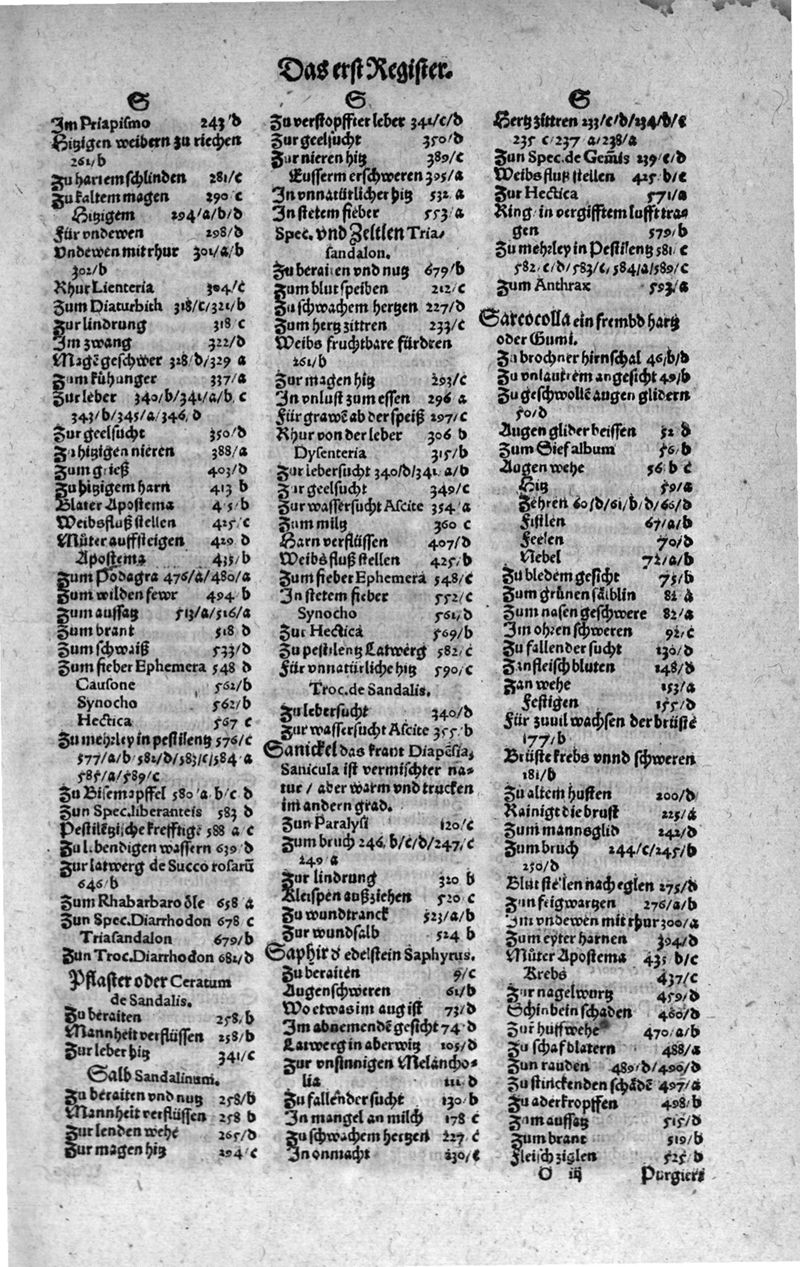 Das erst Register.
S
Im Priapismo 243/d
Hitzigen weibern zu riechen
261/b
Zu hartem schlinden 281/c
Zu kaltem magen 290/c
Hitzigem 294/a/b/d
Für vndewen 298/d
Vndewen mit rhur 301/a/b
302/b
Rhur Lienteria 304/c
Zum Diaturbith 318/c/321/b
Zur lindrung 318/c
Im zwang 322/d
Magē geschwer 328/d/329/a
Zum kühunger 337/a
Zur leber 340/b/341/a/b/c
343/b/345/a/346/d
Zur geelsucht 350/d
Zu hitzigen nieren 388/a
Zum grieß 403/d
Zu hitzigem harn 413/b
Blater Apostema
Weibsfluß stellen 425/c
Müter auffsteigen 429/d
Apostema 435/b
Zum Podagra 476/a/480/a
Zum wilden fewr 494/b
Zum aussatz 513/a/516/a
Zum brant 518/d
Zum schwaiß 533/d
Zum fieber Ephemera 548/d
Causone 562/b
Synocho 562/b
Hectica 567/c
Zu mehrley in pestilentz 576/c
577/a/b/582/d/583/c/584/a
585/a/589/c
Zu Bisemapffel 580/a/b/c/d
Zun Spec. liberanteis 583/d
Pestilētzische krefftige 588/a/c
Zu lebendigen wassern 639/d
Zur latwerg de Succo rosarū
646/b
Zum Rhabarbaro öle 658/a
Zun Spec. Diarrhodon 678/c
Triasandalon 679/b
Zun Troc. Diarrhodon 682/d
Pflaster oder Ceratum
de Sandalis.
Zu beraiten 258/b
Mannheit verflüssen 258/b
Zur leber hitz 341/c
Salb Sandalinum.
Zu beraiten vnd nutz 258/b
Mannheit verflüssen 258/b
Zur lenden wehe 265/d
Zur magen hitz 294/c
S
Zu verstopffter leber 342/c/d
Zur geelsucht 350/d
Zur nieren hitz 389/c
Eusserm erschweren 395/a
In vnnatürlicher hitz 532/a
In stetem fieber 553/a
Spec. vnd Zeltlen Tria-
sandalon.
Zu beraiten vnd nutz 679/b
Zum blut speiben 212/c
Zu schwachem hertzen 227/d
Zum hertz zittren 233/c
Weibs fruchtbare fürdren
261/b
Zur magen hitz 293/c
In vnlust zum essen 296/a
Für grawē ab der speiß 297/c
Rhur von der leber 306/b
Dysenteria 315/b
Zur lebersucht 340/d/341/a/b
Zur geelsucht 349/c
Zur wassersucht Ascite 354/a
Zum miltz 360/c
Harn verflüssen 407/d
Weibs fluß stellen 425/b
Zum fieber Ephemera 548/c
In stetem fieber 552/c
Synocho 561/d
Zur Hectica 569/b
Zu pestilentz Latwerg 582/c
Für vnnatürliche hitz 590/c
Troc. de Sandalis.
Zu lebersucht 340/d
Zur wassersucht Ascite 355/b
Sanickel das kraut Diapēsia,
Sanicula ist vermischter na-
tur/ aber warm vnd trucken
im andern grad.
Zun Paralysi 120/c
Zum bruch 246/b/c/d/247/c
249/a
Zur lindrung 320/b
Kleispen außziehen 520/c
Zu wundtranck 523/a/b
Zur wundsalb 524/b
Saphir d' edelstein Saphyrus.
Zu beraiten 9/c
Augenschweren 61/b
Wo etwas im aug ist 73/d
Im abnemendē gesicht 74/d
Latwerg in aberwitz 105/d
Zur vnsinnigen Melancho-
lia 111/d
Zu fallender sucht 130/b
In mangel an milch 178/c
Zu schwachem hertzen 227/c
In onmacht 230/c
S
Hertz zittren 233/c/d/234/b/c
235/c/237/a/238/a
Zun Spec. de Gemīs 239/c/d
Weibs fluß stellen 425/b/c
Zur Hectica 571/a
Ring in vergifftem lufft tra-
gen 579/b
Zu mehrley in Pestilentz 581/c
582/c/d/583/c/584/a/589/c
Zum Anthrax 593/a
Sarcocolla ein frembd hartz
oder Gumi.
Zu brochner hirnschal 46/b/d
Zu vnlautrem angesicht 49/b
Zu geschwollē augen glidern
50/d
Augen glider beissen 52/d
Zum Sief album 56/b
Augen wehe 56/b/c
Hitz 59/a
Zehren 60/d/61/b/d/66/d
Fistlen 67/a/b
Feelen 70/d
Nebel 72/a/b
Zu bledem gesicht 75/b
Zum grünen sälblin 82/a
Zum nasen geschwere 82/a
Im ohren schweren 92/c
Zu fallender sucht 130/d
Zanfleisch bluten 148/d
Zan wehe 153/a
Festigen 155/d
Für zuuil wachsen der brüste
177/b
Brüste krebs vnnd schweren
181/b
Zu altem husten 200/d
Rainigt die brust 225/a
Zum mannsglid 242/d
Zum bruch 244/c/245/b
250/d
Blut stellen nach eglen 275/d
Zun feigwartzen 276/a/b
Im vndewen mit rhur 300/a
Zum eyter harnen 394/d
Müter Apostema 435/b/c
Krebs 437/c
Zur nagelwurtz 459/d
Schinbein schaden 460/d
Zur hufftwehe 470/a/b
Zu schaf blatern 488/a
Zun rauden 489/d/490/d
Zu stinckenden schädē 497/a
Zu aderkropffen 498/b
Zum aussatz 515/d
Zum brant 519/b
Fleisch ziglen 525/d
O iij Purgiert